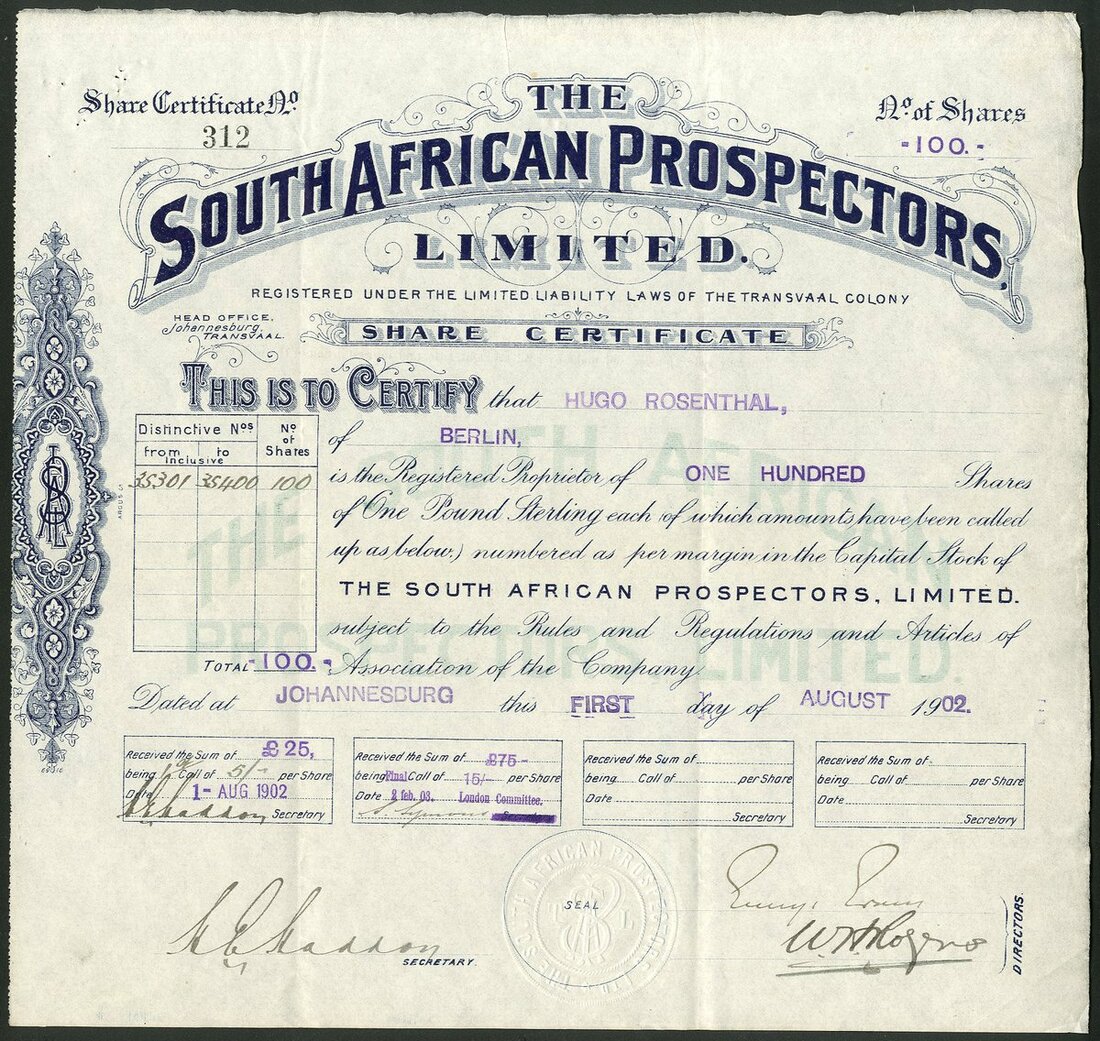 Share Certificate No.
312
No. of Shares
-100.-
THE
SOUTH AFRICAN PROSPECTORS,
LIMITED.
REGISTERED UNDER THE LIMITED LIABILITY LAWS OF THE TRANSVAAL COLONY
HEAD OFFICE,
Johannesburg,
TRANSVAAL.
SHARE CERTIFICATE
THIS IS TO CERTIFY that HUGO ROSENTHAL,
of BERLIN,
is the Registered Proprietor of ONE HUNDRED Shares
of One Pound Sterling each of which amounts have been called
up as below,) numbered as per margin in the Capital Stock of
THE SOUTH AFRICAN PROSPECTORS, LIMITED.
subject to the Rules and Regulations and Articles of
Association of the Company
Distinctive Nos No of Shares
from to
Inclusive
35301 35400 100
TOTAL -100.-
Dated at JOHANNESBURG this FIRST day of AUGUST 1902.
Received the Sum of £25,
being 1st Call of 5/- per Share
Date 1- AUG 1902
Secretary
Received the Sum of £75-
being Final Call of 15/- per Share
Date 2 feb. 03. London Committee.
Secretary
Received the Sum of
being Call of per Share
Date
Secretary
Received the Sum of
being Call of per Share
Date
Secretary
SEAL
THE SOUTH AFRICAN PROSPECTORS LTD
SECRETARY.
W. H. Rogers
DIRECTORS.
ARGUS Co
THE SOUTH AFRICAN
PROSPECTORS, LIMITED.